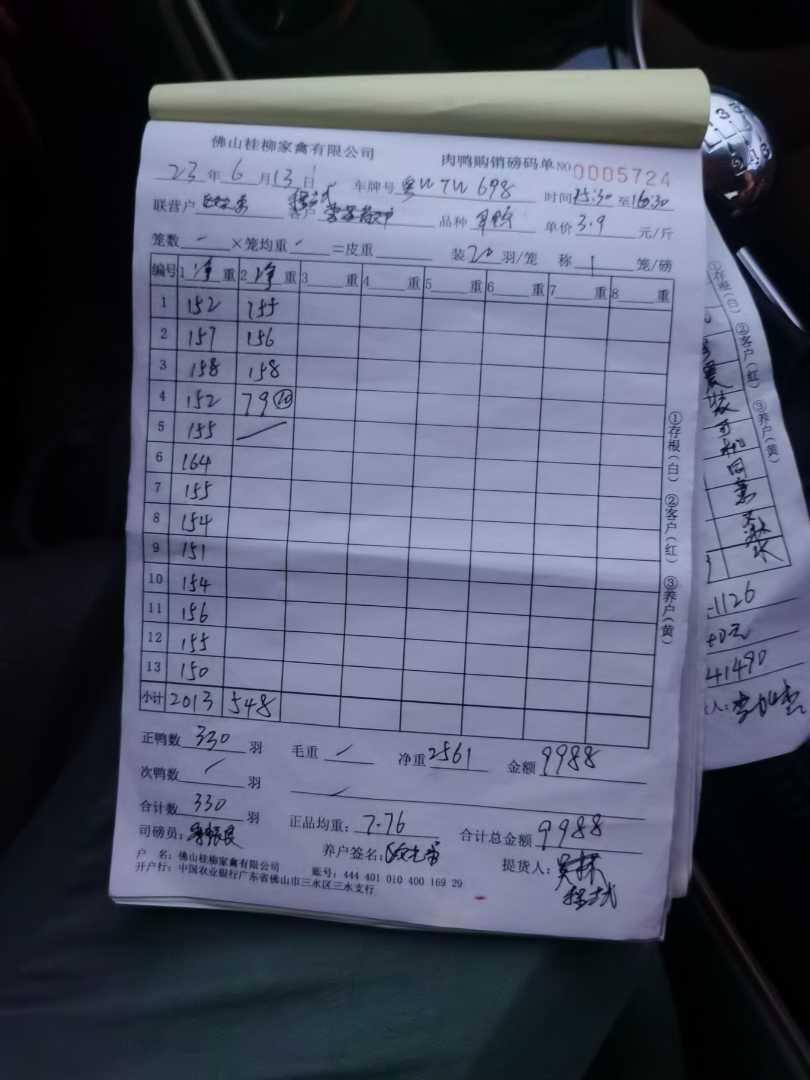 佛山桂柳家禽有限公司 肉鸭购销磅码单 NO 0005724
23 年 6 月 13 日 车牌号 粤W7W698 时间 15:30 至 16:30
联营户 客户 品种 单价 3.9 元/斤
笼数 — ×笼均重 — =皮重 装 20 羽/笼 称 1 笼/磅
编号 1 净 重 2 净 重 3 重 4 重 5 重 6 重 7 重 8 重
1 152 155
2 157 156
3 158 158
4 152 79 ⑩
5 155 /
6 164
7 155
8 154
9 151
10 154
11 156
12 155
13 150
小计 2013 548
正鸭数 330 羽 毛重 / 净重 2561 金额 9988
次鸭数 / 羽 /
合计数 330 羽 正品均重: 7.76 合计总金额 9988
司磅员: 养户签名: 提货人:
户 名: 佛山桂柳家禽有限公司 账号: 444 401 010 400 169 29
开户行: 中国农业银行广东省佛山市三水区三水支行
①存根(白) ②客户(红) ③养户(黄)
①存根(白) ②客户(红) ③养户(黄)
装 司机 同意
-1126
41490